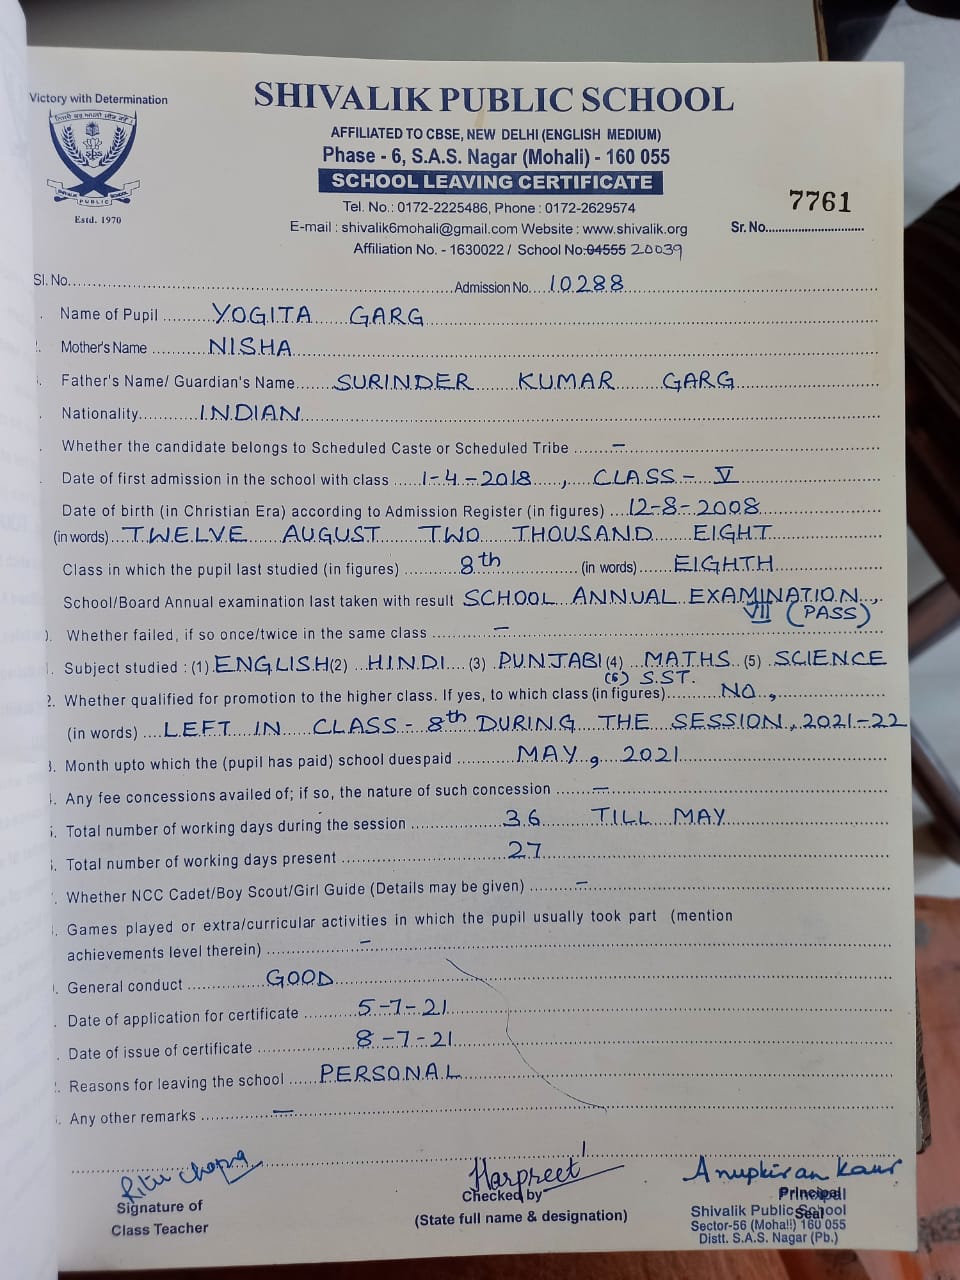 Victory with Determination
SHIVALIK PUBLIC SCHOOL
AFFILIATED TO CBSE, NEW DELHI (ENGLISH MEDIUM)
Phase - 6, S.A.S. Nagar (Mohali) - 160 055
SCHOOL LEAVING CERTIFICATE
SHIVALIK SCHOOL
PUBLIC
Estd. 1970
Tel. No.: 0172-2225486, Phone : 0172-2629574
E-mail : shivalik6mohali@gmail.com Website : www.shivalik.org
Affiliation No. - 1630022 / School No:04555 20039
7761
Sr. No..........................
Sl. No........................ Admission No. 10288
Name of Pupil .......... YOGITA GARG
Mother's Name ......... NISHA
Father's Name/ Guardian's Name...... SURINDER KUMAR GARG
Nationality............ INDIAN
Whether the candidate belongs to Scheduled Caste or Scheduled Tribe ....... –
Date of first admission in the school with class ..... 1-4-2018, CLASS - V
Date of birth (in Christian Era) according to Admission Register (in figures) ... 12-8-2008
(in words).. TWELVE AUGUST TWO THOUSAND EIGHT
Class in which the pupil last studied (in figures) ......... 8th (in words)..... EIGHTH
School/Board Annual examination last taken with result SCHOOL ANNUAL EXAMINATION,
VII (PASS)
Whether failed, if so once/twice in the same class ......... –
Subject studied : (1) ENGLISH (2) HINDI (3) PUNJABI (4) MATHS (5) SCIENCE
(6) S.ST.
2. Whether qualified for promotion to the higher class. If yes, to which class (in figures)........ NO,
(in words) .... LEFT IN CLASS - 8th DURING THE SESSION, 2021-22
Month upto which the (pupil has paid) school duespaid ......... MAY, 2021
Any fee concessions availed of; if so, the nature of such concession ...... –
Total number of working days during the session ............ 36 TILL MAY
Total number of working days present ................ 27
Whether NCC Cadet/Boy Scout/Girl Guide (Details may be given) ........ –
Games played or extra/curricular activities in which the pupil usually took part (mention
achievements level therein) ............ –
General conduct ............ GOOD
Date of application for certificate ......... 5-7-21
Date of issue of certificate .............. 8-7-21
Reasons for leaving the school ..... PERSONAL
Any other remarks .......... –
Ritu Chopra
Signature of
Class Teacher
Harpreet
Checked by
(State full name & designation)
Anupkiran Kaur
Principal
Seal
Shivalik Public School
Sector-56 (Mohali) 160 055
Distt. S.A.S. Nagar (Pb.)